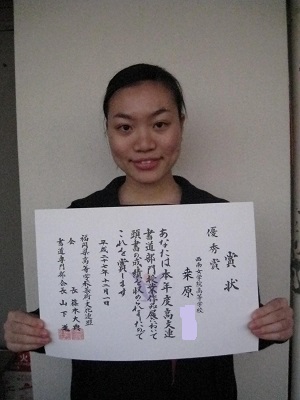 賞状
優秀賞
西南女学院高等学校
桒原
あなたは本年度高文連
書道部門
作品展において
頭書の成績を収められましたので
これを賞します
平成二十七年十二月一日
福岡県高等学校芸術・文化連盟
会長
書道専門部会長 山下